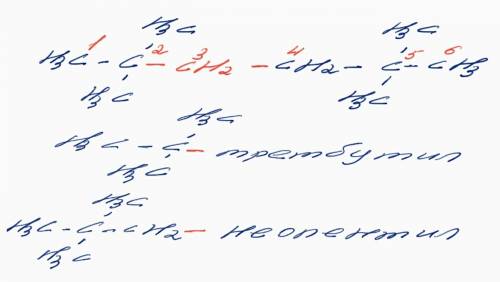 H₃C H₃C
1 2 3 4 5 6
H₃C - C - CH₂ - CH₂ - C - CH₃
H₃C H₃C
H₃C
H₃C - C - третбутил
H₃C
H₃C
H₃C - C - CH₂ - неопентил
H₃C